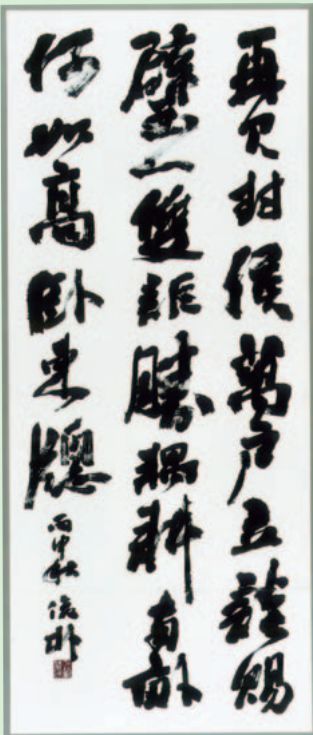 再見封侯萬户立談賜
璧一雙詎勝耦耕南畝
何如高臥東牕
丙申秋